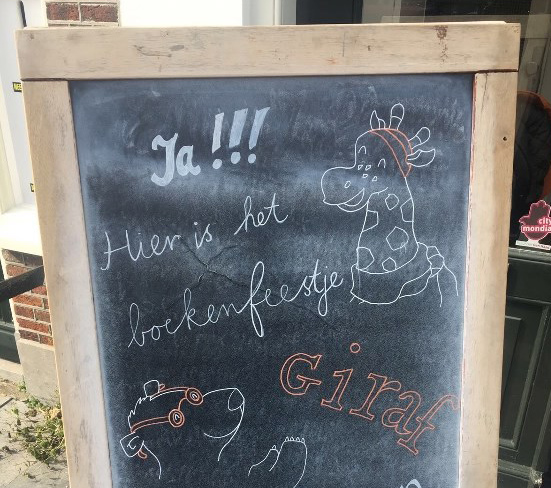 Ja!!!
Hier is het
boekenfeestje
Giraf
city
mondia